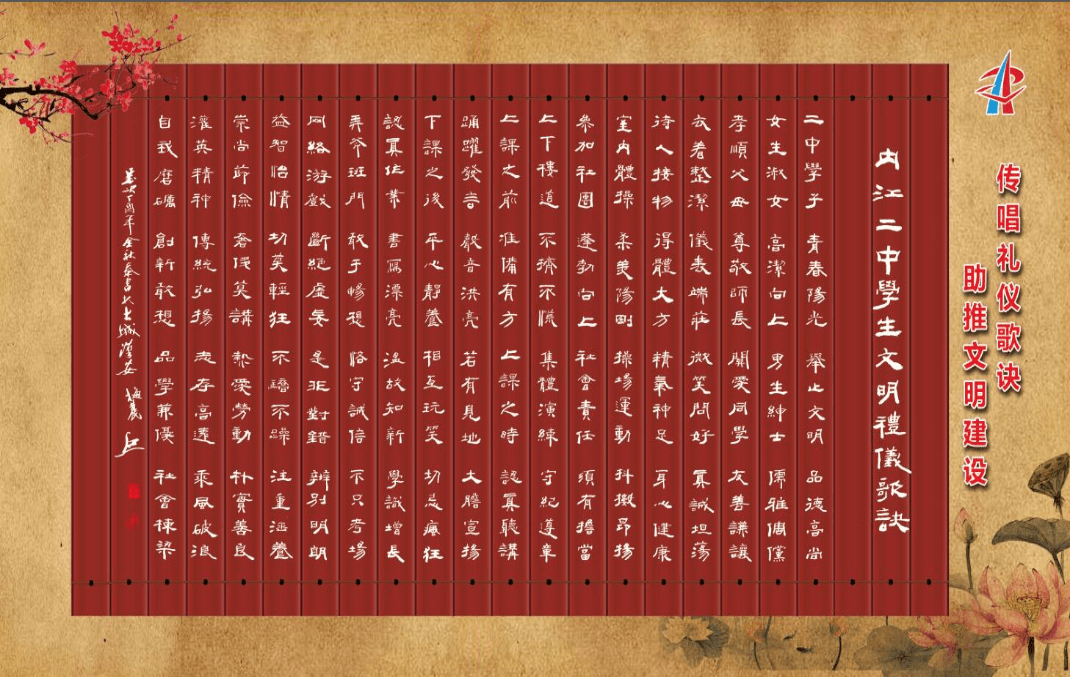 传唱礼仪歌诀
助推文明建设
内江二中學生文明禮儀歌訣
二中學子 青春陽光 舉止文明 品德高尚
女生淑女 高潔向上 男生紳士 儒雅倜儻
孝順父母 尊敬師長 關愛同學 友善謙讓
衣着整潔 儀表端莊 微笑問好 真誠坦蕩
待人接物 得體大方 精氣神足 身心健康
室内體操 柔美陽剛 操場運動 抖擻昂揚
參加社團 蓬勃向上 社會責任 須有擔當
上下樓道 不擠不慌 集體演練 守紀遵章
上課之前 准備有方 上課之時 認真聽講
踊躍發言 聲音洪亮 若有見地 大膽宣揚
下課之後 平心靜養 相互玩笑 切忌瘋狂
認真作業 書寫漂亮 溫故知新 學識增長
弄斧班門 敢于暢想 恪守誠信 不只考場
网絡游戲 斷絕虛妄 是非對錯 辨别明朗
益智怡情 切莫輕狂 不驕不躁 注重涵養
崇尚節儉 奢侈莫講 熱愛勞動 朴實善良
灌英精神 傳統弘揚 志存高遠 乘風破浪
自我磨礪 創新敢想 品學兼優 社會棟梁
歲次丁酉年金秋